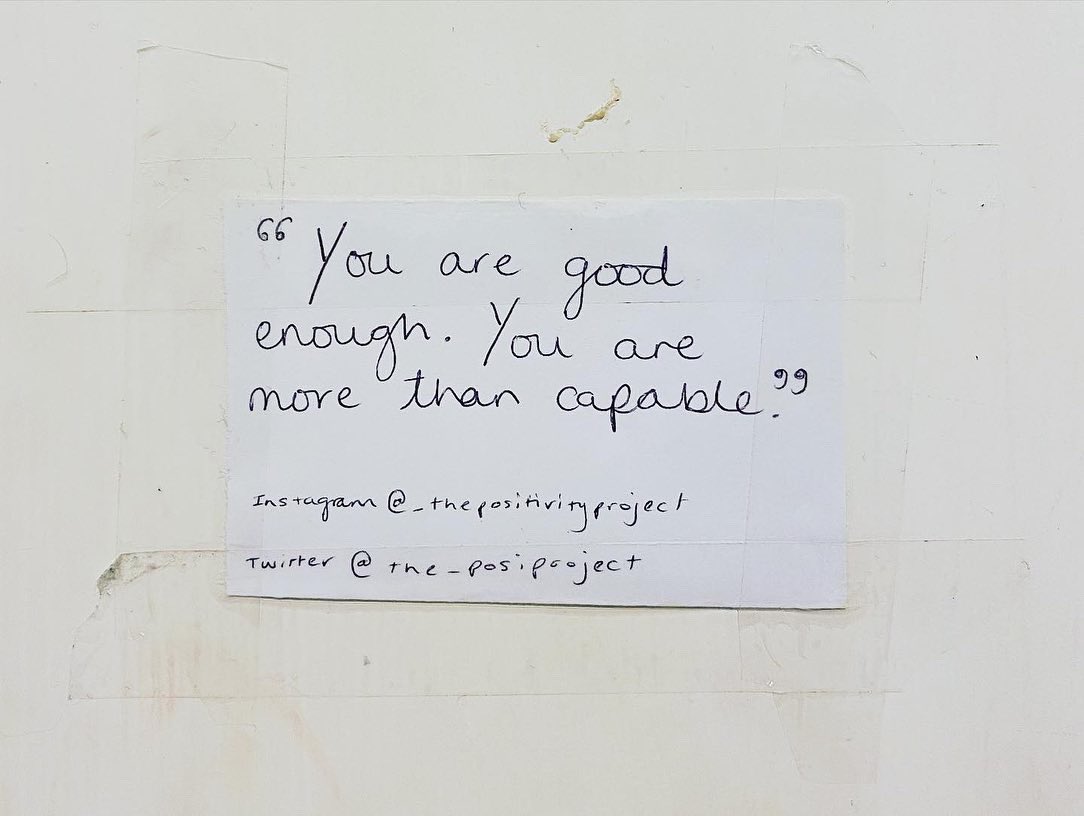 “You are good
enough. You are
more than capable.”
Instagram @_thepositivityproject
Twitter @the_posiproject